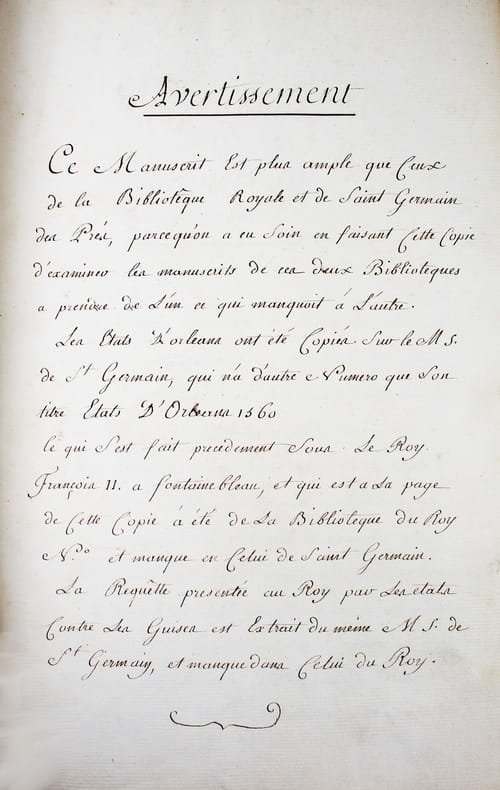 Avertissement
Ce Manuscrit Est plus ample que Ceux
de la Bibliotêque Royale et de Saint Germain
des Prés, parcequ'on a eu Soin en faisant Cette Copie
d'examiner les manuscrits de ces deux Biblioteques
a prendre de L'un ce qui manquoit à L'autre.
Les Etats D'orleans ont été Copiés Sur le M S.
de St Germain, qui n'a d'autre Numero que Son
titre Etats D'Orleans 1560
le qui s'est fait precédement Sous Le Roy
François II. a fontainebleau, et qui est a La page
de Cette Copie à été de La Biblioteque du Roy
N.o et manque en Celui de Saint Germain.
La Requête presentée au Roy par Les etats
Contre Les Guises est Extrait du même M S. de
St Germain, et manque dans Celui du Roy.